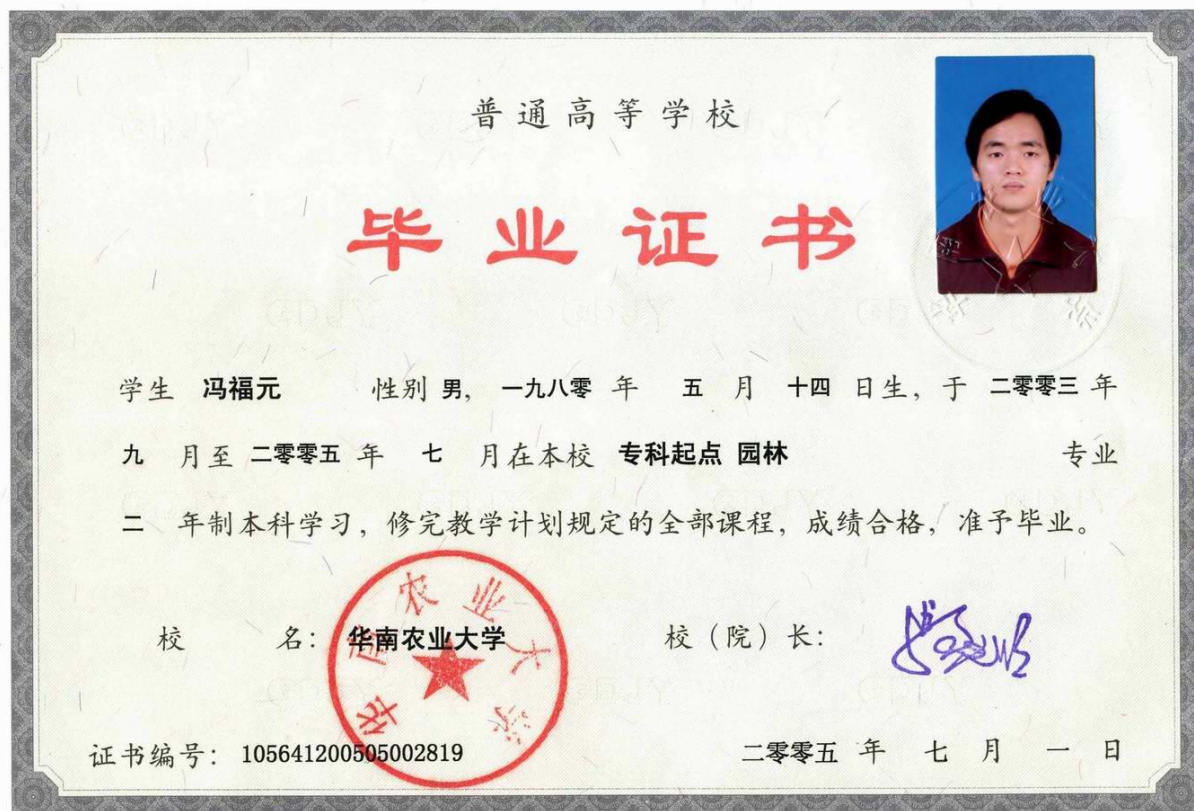 普通高等学校
毕业证书
学生 冯福元 性别 男, 一九八零 年 五 月 十四 日生, 于 二零零三 年
九 月至 二零零五 年 七 月在本校 专科起点 园林 专业
二 年制本科学习, 修完教学计划规定的全部课程, 成绩合格, 准予毕业。
校 名: 华南农业大学
校(院)长:
华南农业大学
证书编号: 105641200505002819
二零零五 年 七 月 一 日